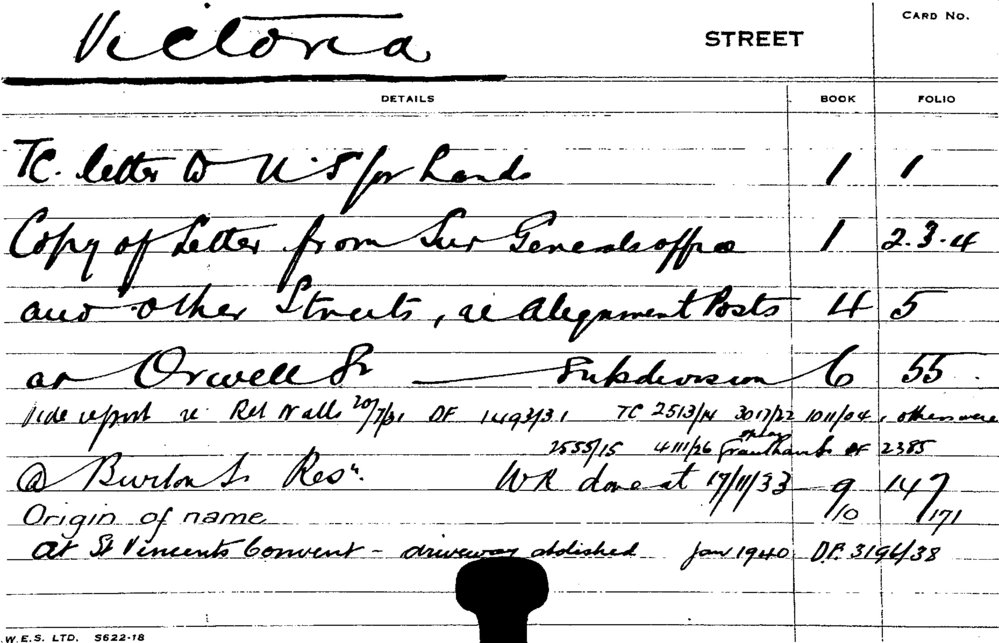 Victoria STREET CARD No.
DETAILS BOOK FOLIO
TC. letter to U.S for Lands 1 1
Copy of Letter from Sur Generals office 1 2.3.4
and other Streets, re Alignment Posts 4 5
at Orwell St — Subdivision 6 55
Vide report re Ret Walls 20/7/31 DF 1493/31 TC 2513/14 3017/22 1011/04, others were
2555/15 4111/26 DF 2385
@ Burton St Resn. WK done at 17/11/33 9 147
Origin of name 10 171
at St Vincents Convent - driveway abolished Jan 1940 D.P. 3196/38
W.E.S. LTD. S622-18